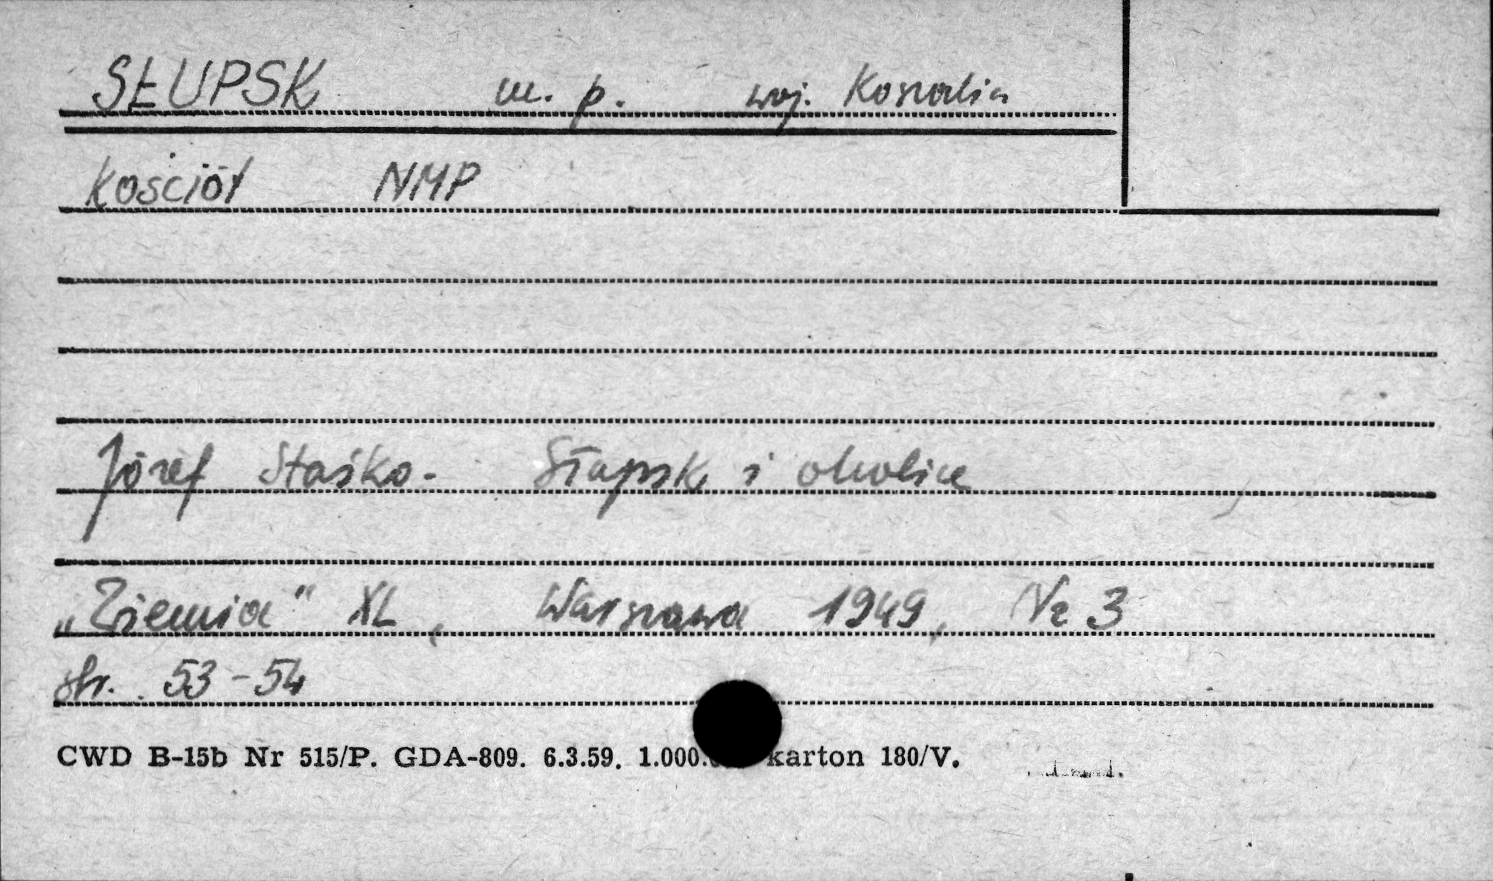 SŁUPSK m. p. woj. Koszalin
Kościół NMP
Józef Staśko - Słupsk i okolice
„Ziemia" XL, Warszawa 1949, Nr 3
str. 53-54
CWD B-15b Nr 515/P. GDA-809. 6.3.59. 1.000. karton 180/V.